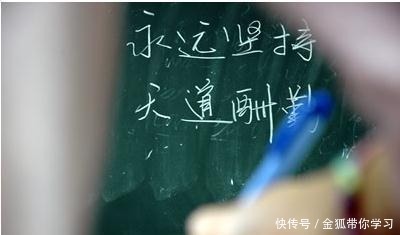 永远坚持
天道酬勤
快传号 / 金狐带你学习